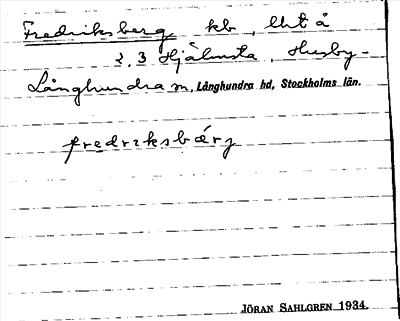 Fredriksberg kb, Utt å
2, 3 Hjälmsta, Husby-
Långhundra sn, Långhundra hd, Stockholms län.
fredriksbærj
JÖRAN SAHLGREN 1934.